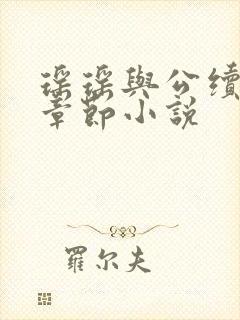 瑶瑶與公續
章節小說
羅尔夫